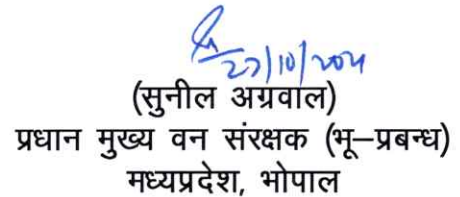 27/10/2021
(सुनील अग्रवाल)
प्रधान मुख्य वन संरक्षक (भू–प्रबन्ध)
मध्यप्रदेश, भोपाल